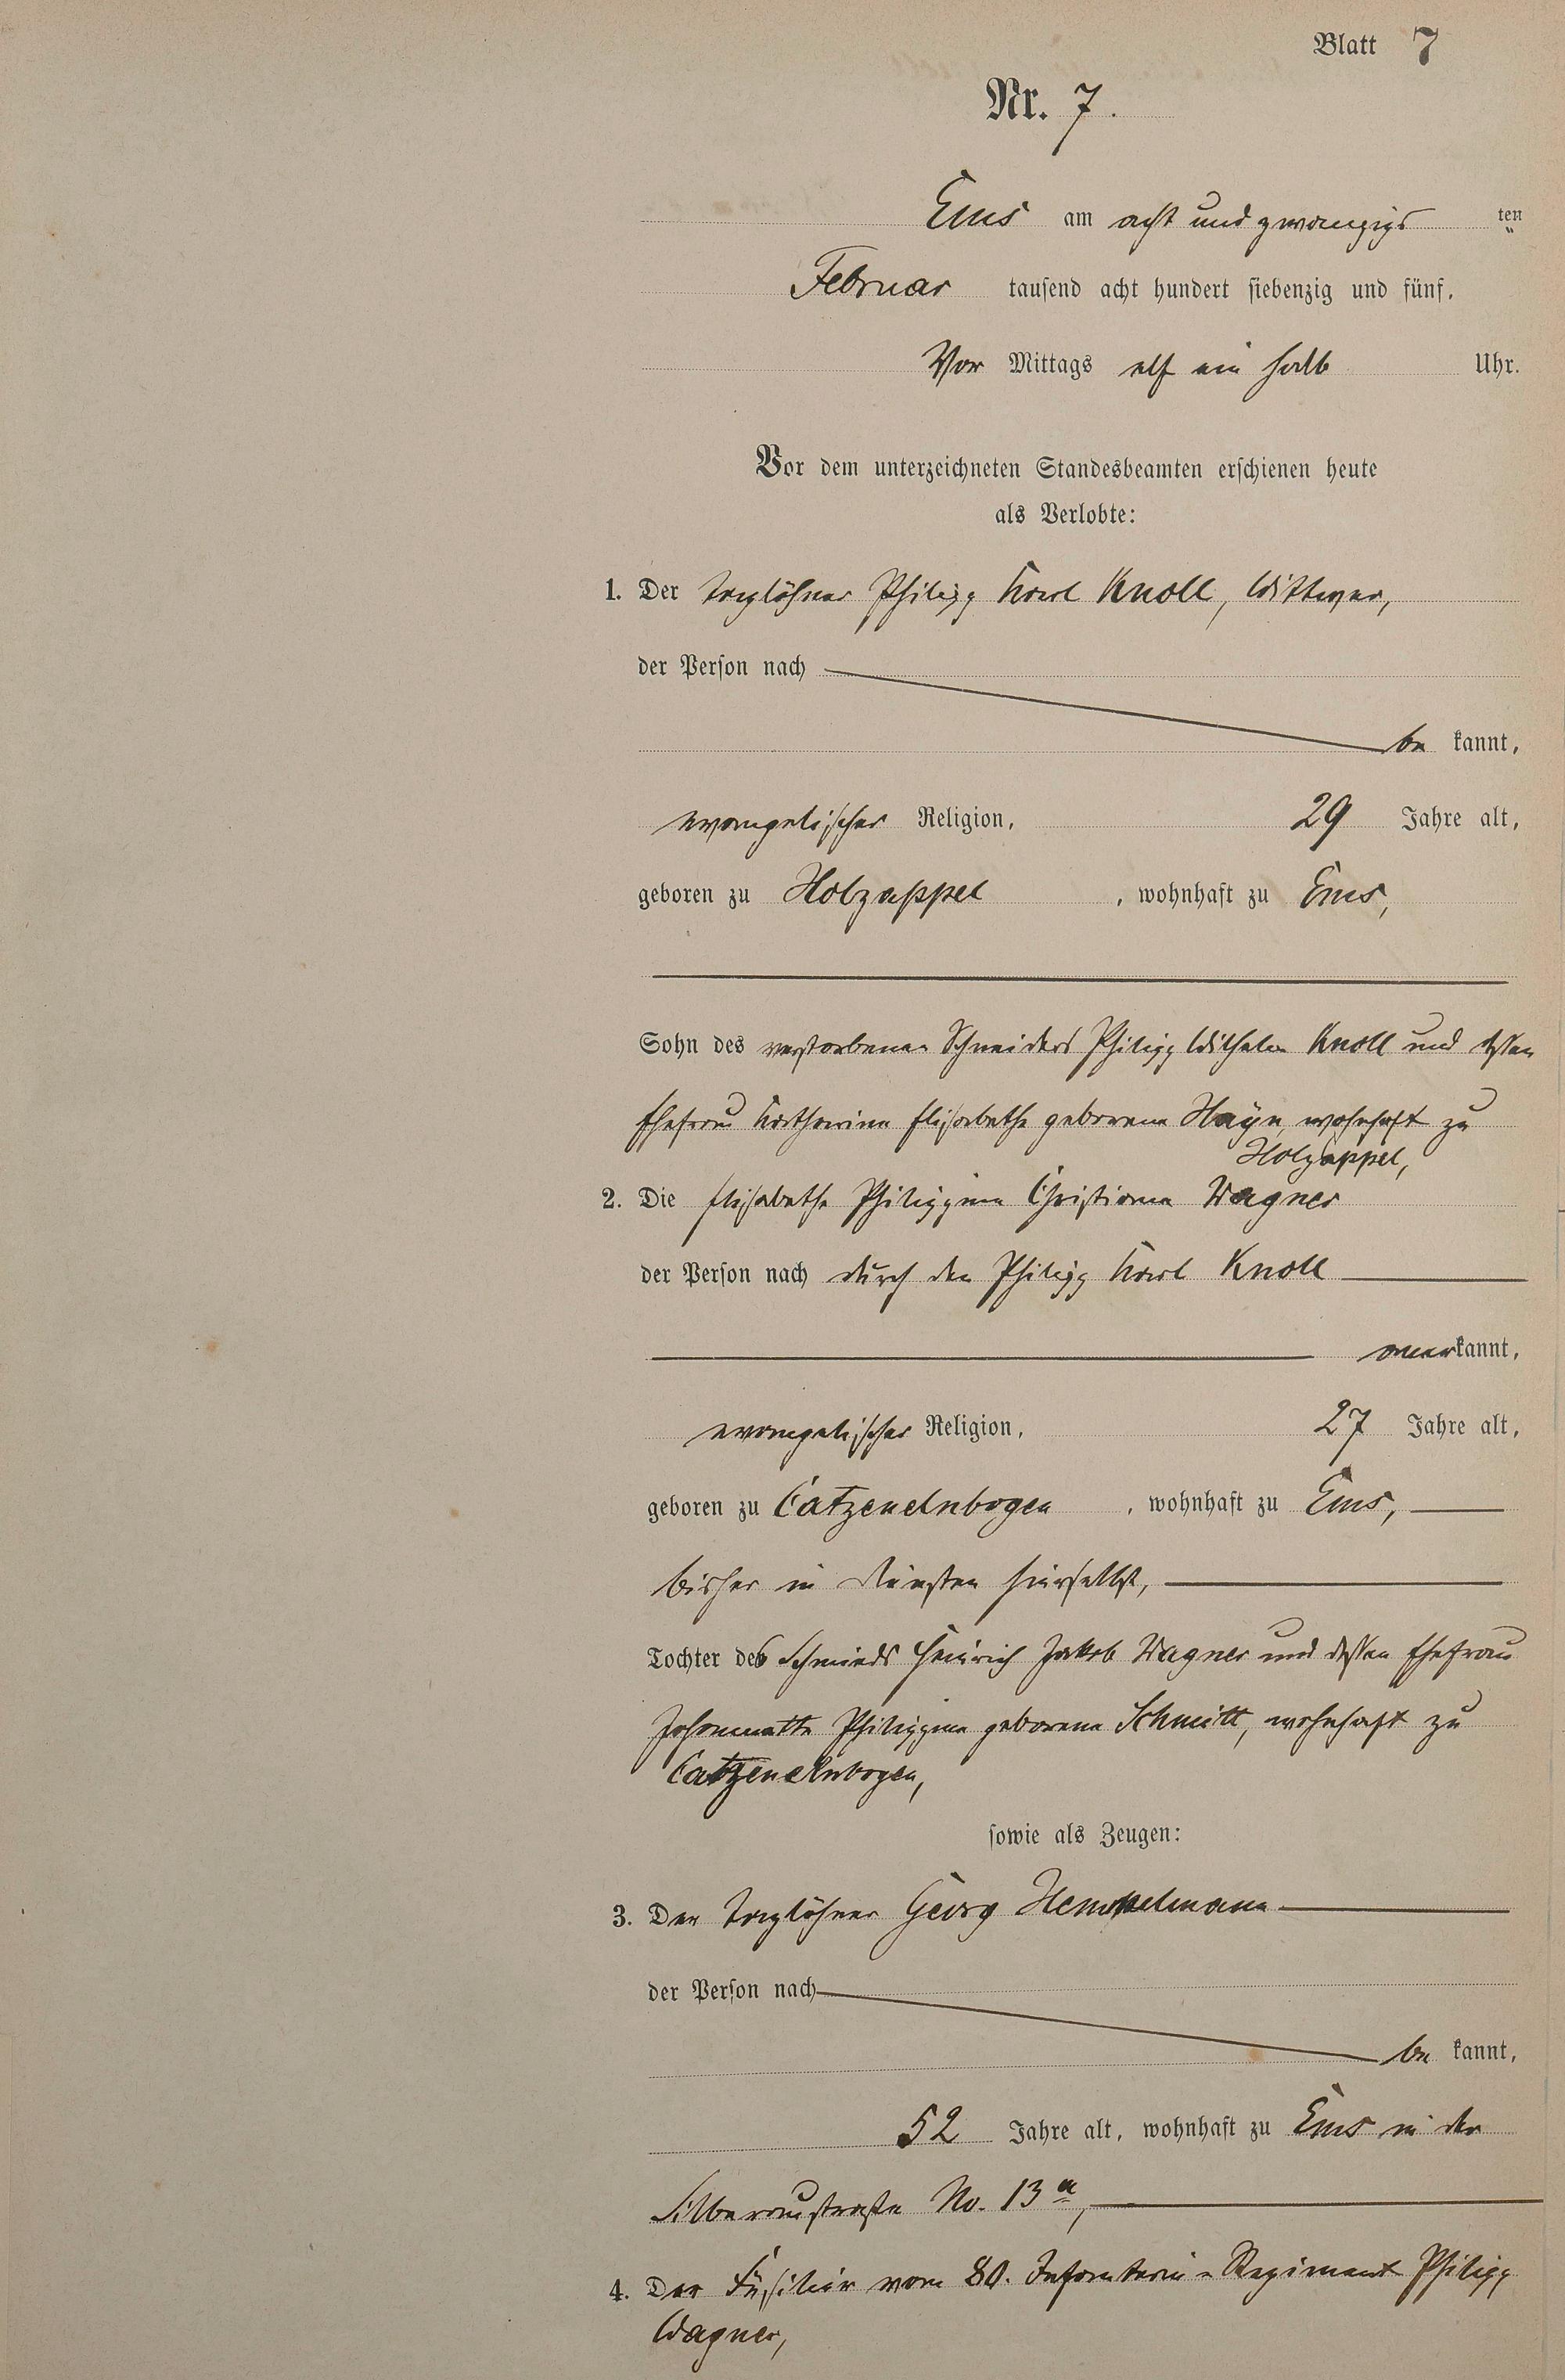 Blatt 7
Nr. 7.
Ems am acht und zwanzigs ten
Februar tausend acht hundert siebenzig und fünf,
Vor Mittags elf ein halb Uhr.
Vor dem unterzeichneten Standesbeamten erschienen heute
als Verlobte:
1. Der Taglöhner Philipp Karl Knoll, Wittwer,
der Person nach
be kannt,
evangelischer Religion, 29 Jahre alt,
geboren zu Holzappel, wohnhaft zu Ems,
Sohn des verstorbenen Schneiders Philipp Wilhelm Knoll und dessen
Ehefrau Katharina Elisabetha geborene Hayn, wohnhaft zu
Holzappel,
2. Die Elisabetha Philippina Christiana Wagner
der Person nach durch den Philipp Karl Knoll
anerkannt,
evangelischer Religion, 27 Jahre alt,
geboren zu Catzenelnbogen, wohnhaft zu Ems,
bisher in Diensten hierselbst,
Tochter des Schmieds Heinrich Jakob Wagner und dessen Ehefrau
Johannette Philippina geborene Schmitt, wohnhaft zu
Catzenelnbogen,
sowie als Zeugen:
3. Der Taglöhner Georg Hempelmann
der Person nach
be kannt,
52 Jahre alt, wohnhaft zu Ems in der
Silberaustraße No. 13 a,
4. Der Füsilier vom 80. Infanterie-Regiment Philipp
Wagner,